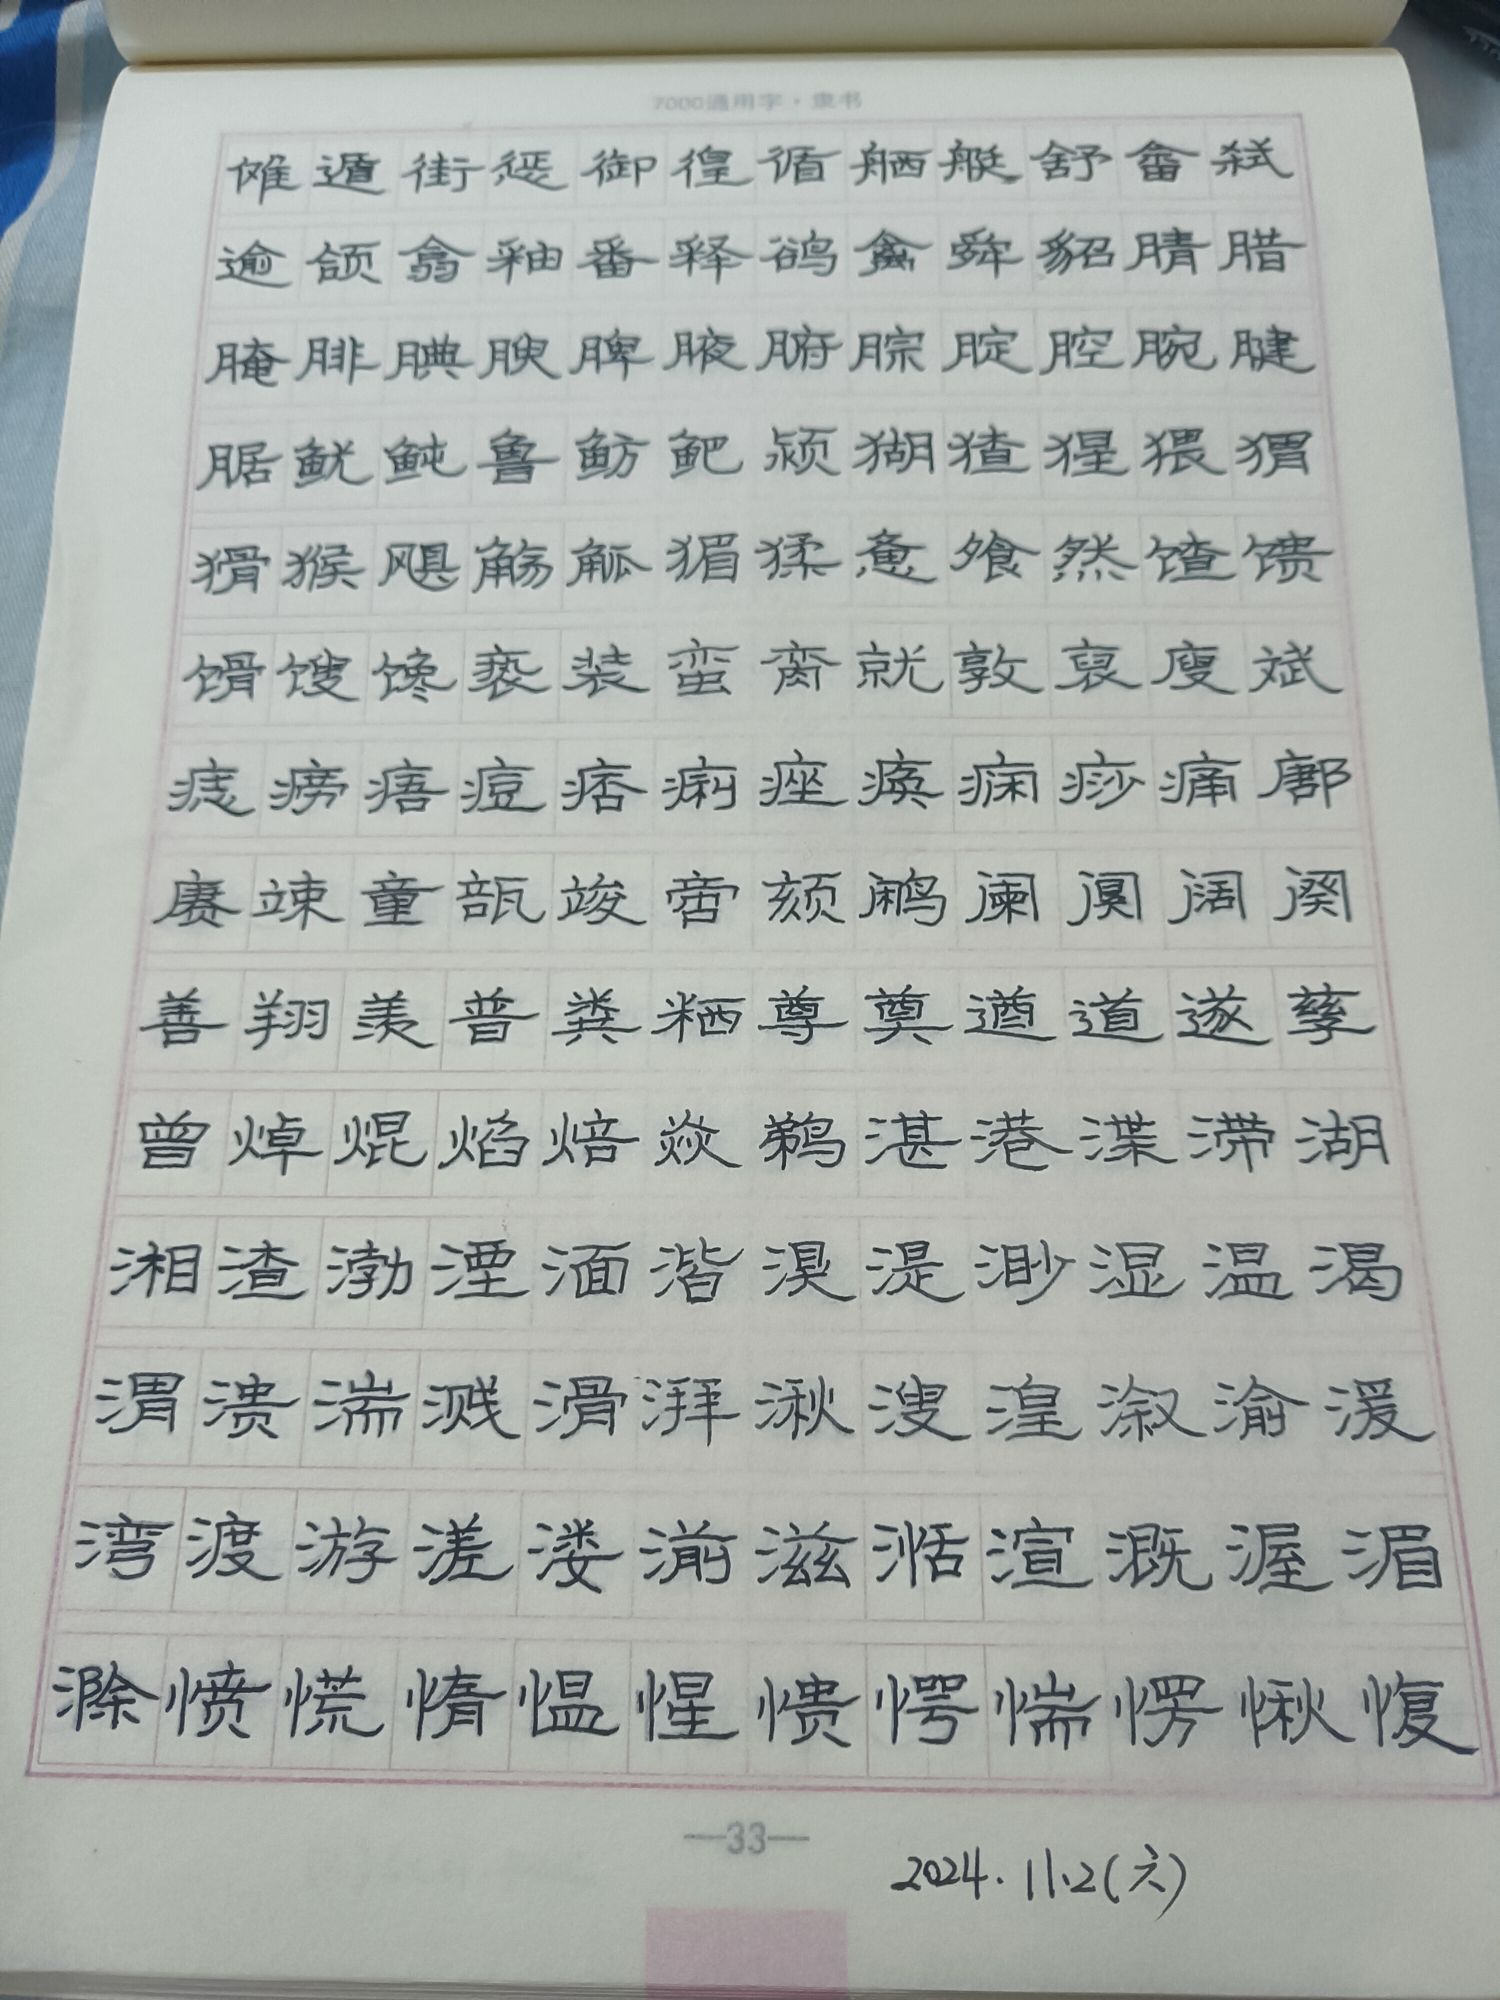 7000通用字·隶书
傩遁街惩御徨循舾艇舒畲弑
逾颌翕釉番释鹆禽舜貂腈腊
腌腓腆腴脾腋腑腙腚腔腕腱
腒鱿鲀鲁鲂鲃颍猢猹猩猥猬
猾猴飓觞觚猸猱惫飧然馇馈
馉馊馋亵装蛮脔就敦裒廋斌
痣痨痦痘痞痢痤痪痫痧痛鄌
赓竦童瓿竣啻颏鹇阑阒阔阕
善翔羡普粪粞尊奠遒道遂孳
曾焯焜焰焙焱鹈湛港渫滞湖
湘渣渤湮湎湝湨湜渺湿温渴
渭溃湍溅滑湃湫溲湟溆渝湲
湾渡游溠溇湔滋湉渲溉渥湄
滁愤慌惰愠惺愦愕惴愣愀愎
—33—
2024.11.2(六)